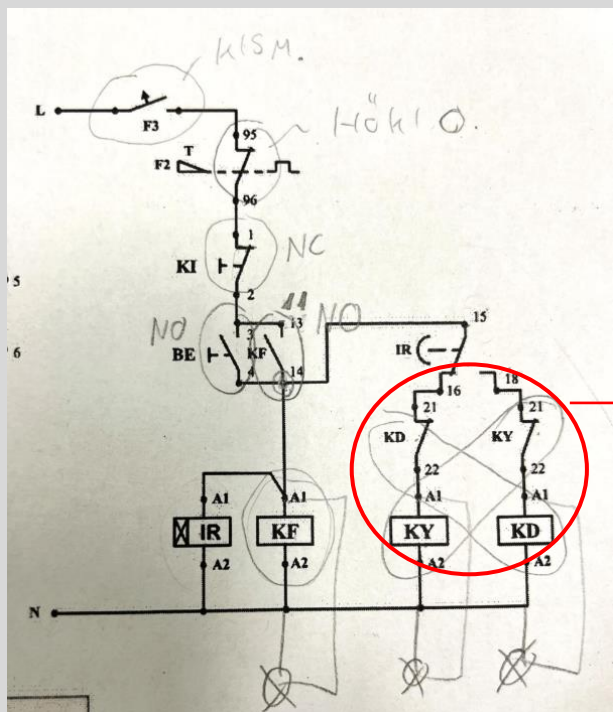 KISM.
L
F3
HŐKIO.
95
T
F2
96
1
KI
NC
2
P 5
P 6
NO
3
13
NO
BE
KF
4
14
15
IR
16
18
21
21
KD
KY
22
22
A1
A1
A1
A1
IR
KF
KY
KD
A2
A2
A2
A2
N